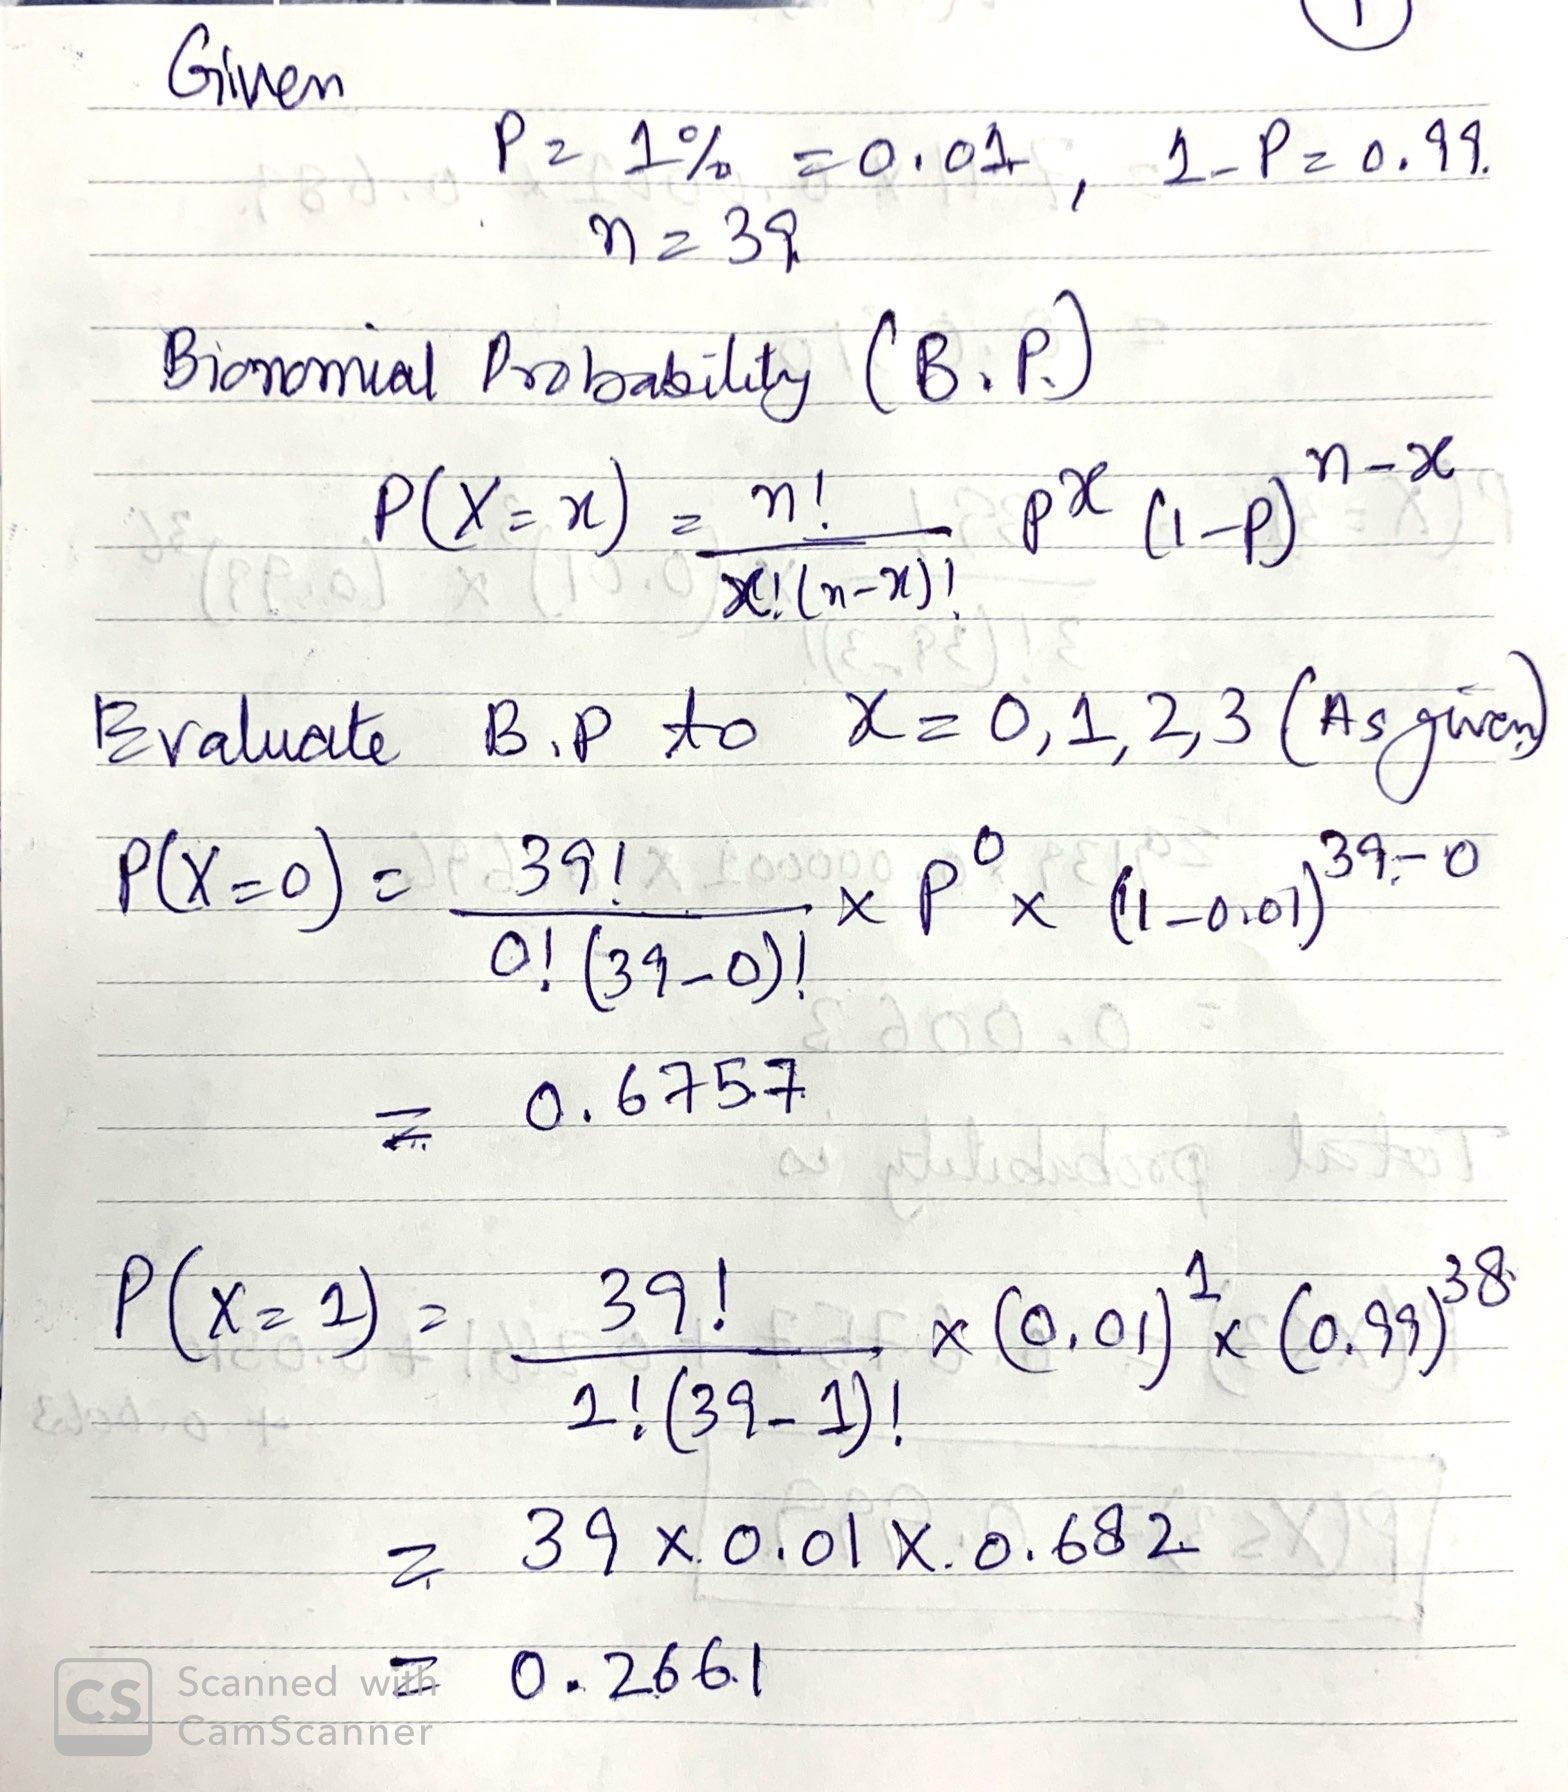 1
Given
P = 1% = 0.01, 1-P = 0.99.
n = 39
Bionomial Probability (B.P.)
P(X=x) = n! / x!(n-x)! p^x (1-P)^n-x
Evaluate B.P to x = 0,1,2,3 (As given)
P(X=0) = 39! / 0!(39-0)! × P^0 × (1-0.01)^39-0
= 0.6757
P(X=1) = 39! / 1!(39-1)! × (0.01)^1 × (0.99)^38
= 39 × 0.01 × 0.682
= 0.2661
CS Scanned with
CamScanner